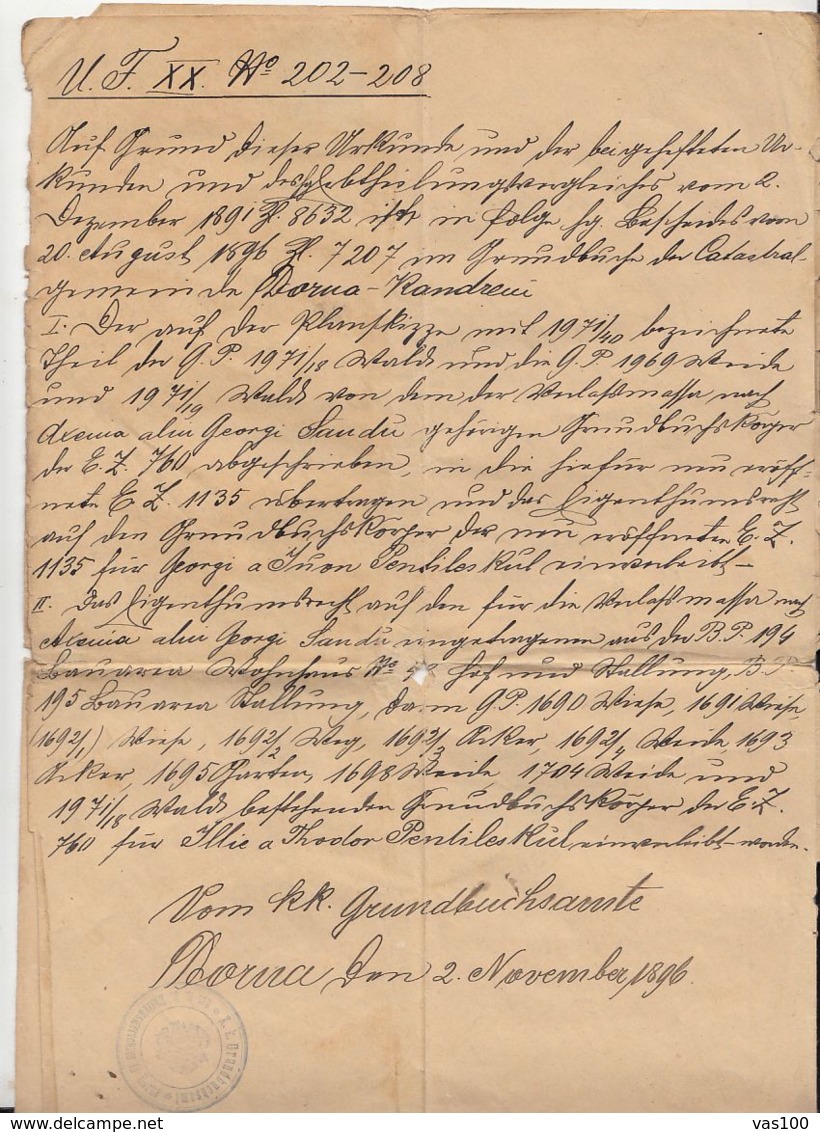 U. F. XX. No 202–208
Auf Grund dieser Urkunde und der beigehefteten Ur-
kunden und des Erbtheilungsvergleiches vom 2.
Dezember 1891 Zl. 8632 ist in folge hg. Bescheides vom
20. August 1896 Zl. 7207 im Grundbuche der Catastral-
gemeinde Dorna-Kandreni
I. Der auf der Planskizze mit 1971/40 bezeichnete
Theil der G.P. 1971/18 Wald und die G.P. 1969 Weide
und 1971/19 Wald von dem der Verlassmassa nach
Axenia alui Georgi Sandu gehörigen Grundbuchskörper
der E. Z. 760 abgeschrieben, in die hiefür neu eröff-
nete E. Z. 1135 übertragen und das Eigenthumsrecht
auf den Grundbuchskörper der neu eröffneten E. Z.
1135 für Georgi a Iuon Pentileskul einverleibt –
II. Das Eigenthumsrecht auf den für die Verlassmassa nach
Axenia alui Georgi Sandu eingetragenen aus der B.P. 194
Bauarea Wohnhaus No Hof und Stallung, B.P.
195 Bauarea Stallung, dann G.P. 1690 Wiese, 1691 Wiese,
(1692/1) Wiese, 1692/2 Weg, 1692/3 Acker, 1692/4 Weide, 1693
Acker, 1695 Garten, 1698 Weide, 1704 Weide und
1971/18 Wald bestehenden Grundbuchskörper der E. Z.
760 für Illie a Thodor Pentileskul einverleibt worden.
Vom kk. Grundbuchsamte
Dorna den 2. November, 1896.
vas100